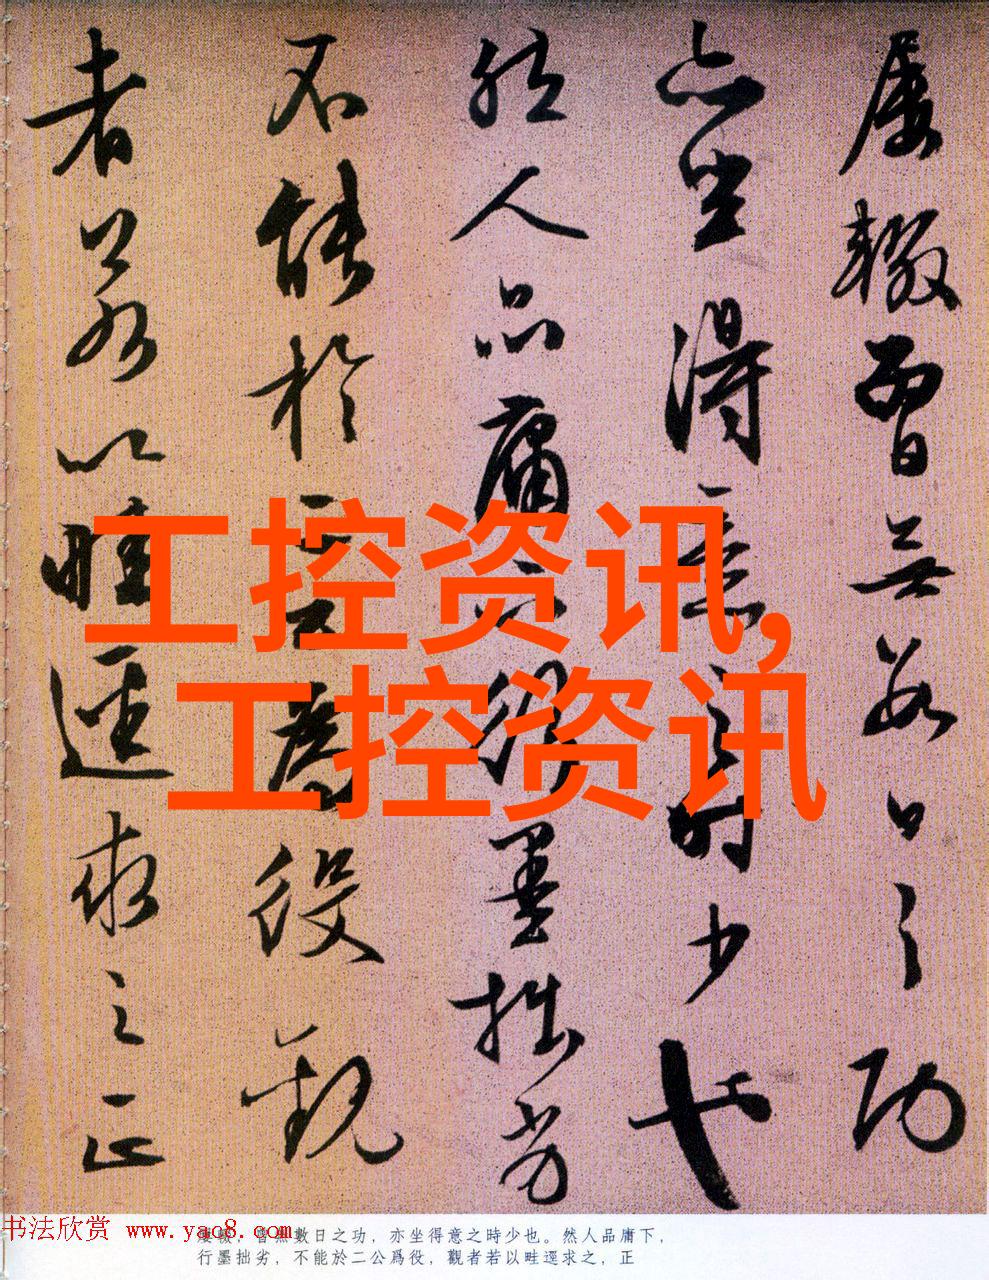 屢輟曾無數日之功
亦坐得意之時少也
然人品庸下行墨拙劣
不能於二公爲役觀
者若以畦逕求之正
工控资讯,
工控资讯
书法欣赏 www.yac8.com
屢輟，曾無數日之功，亦坐得意之時少也。然人品庸下，
行墨拙劣，不能於二公爲役，觀者若以畦逕求之，正